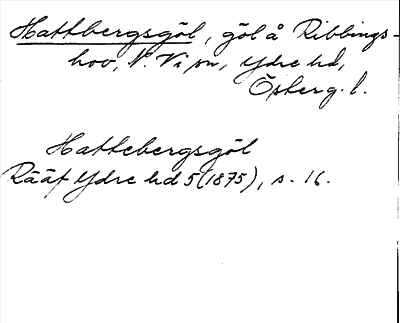 Hattbergsgöl, göl å Ribbings-
hov, N. Vi sn, Ydre hd,
Österg. l.
Hattebergsgöl
Rääf Ydre hd 5 (1875), s. 16.